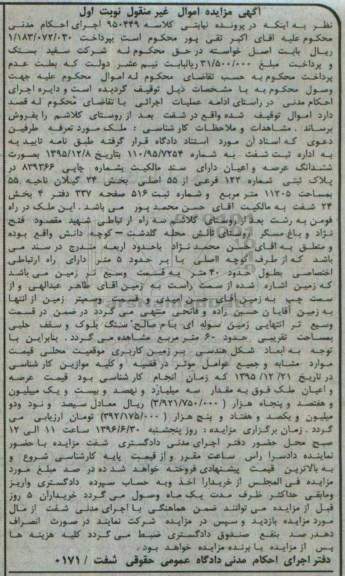 آگهی مزایده اموال غیر منقول نوبت اول
نظر به اینکه در پرونده نیابتی کلاسه ۹۵۰۴۴۹ اجرای احکام مدنی
محکوم علیه اقای اکبر تقی پور محکوم است بپرداخت ۱/۱۸۳/۰۷۲/۰۳۰
ریال بابت اصل خواسته در حق محکوم له شرکت سفید بستک
و پرداخت مبلغ ۳۱/۵۰۰/۰۰۰ ریال بابت نیم عشر دولت که بعلت عدم
پرداخت محکوم به حسب تقاضای محکوم له اموال محکوم علیه جهت
وصول محکوم به با مشخصات ذیل توقیف گردیده است و دایره اجرای
احکام مدنی در راستای ادامه عملیات اجرائی با تقاضای محکوم له قصد
دارد اموال توقیف شده واقع در شفت بعد از روستای کلاشم را بفروش
برساند . مشاهدات و ملاحظات کارشناسی : ملک مورد تعرفه طرفین
دعوی که استاد آن مورد استناد دادگاه قرار گرفته طبق نامه تاییدیه
به اداره ثبت شفت به شماره ۱۱۰/۹۵/۷۲۵۴ بتاریخ ۱۳۹۵/۱۲/۸ بصورت
ششدانگ عرصه و اعیان دارای سند مالکیت بشماره چاپی ۸۳۹۳۶۶ در
پلاک ثبتی شماره ۱۲۲ فرعی از ۵۵ اصلی بخش ۲۴ گیلان ناحیه ۵۵
بمساحت ۱۱۲۰۵ متر مربع و شماره ثبت ۵۱۶ صفحه ۳۳۷ دفتر ۴ بخش
۲۴ شفت به مالکیت اقای حسن محمد پور می باشد . این ملک در راه
فومن به رشت بعد از روستای کلاشم سه راه ارتباطی شهید مقصود فتح
نژاد و باغ مسگر روستای تالش محله گلدشت – کوچه دانش واقع بوده
و متعلق به اقای علی محمد نژاد باحدود اربعه مندرج در سند می
باشد که از طرف کوچه ۱۱اصلی با بر حدود ۵ متر دارای راه ارتباطی
اختصاصی بطول حدود ۴۰ متر به قسمت وسیع تر زمین می باشد
که زمین اشاره شده از سمت راست به زمین اقای طاهر عبدالهی و از
سمت چپ به زمین آقای حسن امیدی و قسمت وسیعتر زمین از انتها
به زمین آقایان حسین زاده و فاتحی منتهی می گردد در ضمن در قسمت
وسیع تر انتهایی زمین سوله ای با مصالح سنگ بلوک و سقف حلبی
بمساحت تقریبی حدود ۶۰ متر مربع مشاهده می گردد . بنابراین با
توجه به ابعاد شکل هندسی بر زمین کاربری موقعیت محلی قیمت
موارد مشابه و جمیع عوامل موثر در قضیه و کلیه موازین کارشناسی
در تاریخ ۲۱/ ۱۲/ ۱۳۹۵ که زمان انجام کارشناسی بود قیمت عرصه
و اعیان ملک فوق به مقدار سه میلیارد و نهصد و بیست و یک میلیون
و هفتصد و پنجاه هزار (۳/۹۲۱/۷۵۰/۰۰۰) ریال معادل سیصد و نود ودو
میلیون و یکصد و هفتاد و پنج هزار (۳۹۲/۱۷۵/۰۰۰) تومان ارزیابی می
گردد . زمان برگزاری مزایده : روز پنجشنبه ۱۳۹۶/۶/۳۰ ساعت ۱۱ الی ۱۲
صبح محل حضور دفتر اجرای مدنی دادگستری شفت مزایده با حضور
نماینده دادسرا راس ساعت مقرر و از قیمت پایه کارشناسی شروع و
به بالاترین قیمت پیشنهادی فروخته خواهد شد ده در صد مبلغ مورد
مزایده فی المجلس از خریدار اخذ و به حساب سپرده دادگستری واریز
و مابقی حداکثر ظرف مدت یک ماه وصول می گردد خریداران ۵ روز
قبل از مزایده می توانند ضمن هماهنگی با اجرای مدنی شفت از مال
مورد مزایده بازدید و سپس در مزایده شرکت نمایند در صورت انصراف
دهدر صد بنفع صندوق دادگستری ضبط می گردد کلیه هزینه ها
پس از مزایده با برنده مزایده خواهد بود .
دفتر اجرای احکام مدنی دادگاه عمومی حقوقی شفت / ۰۱۷۱